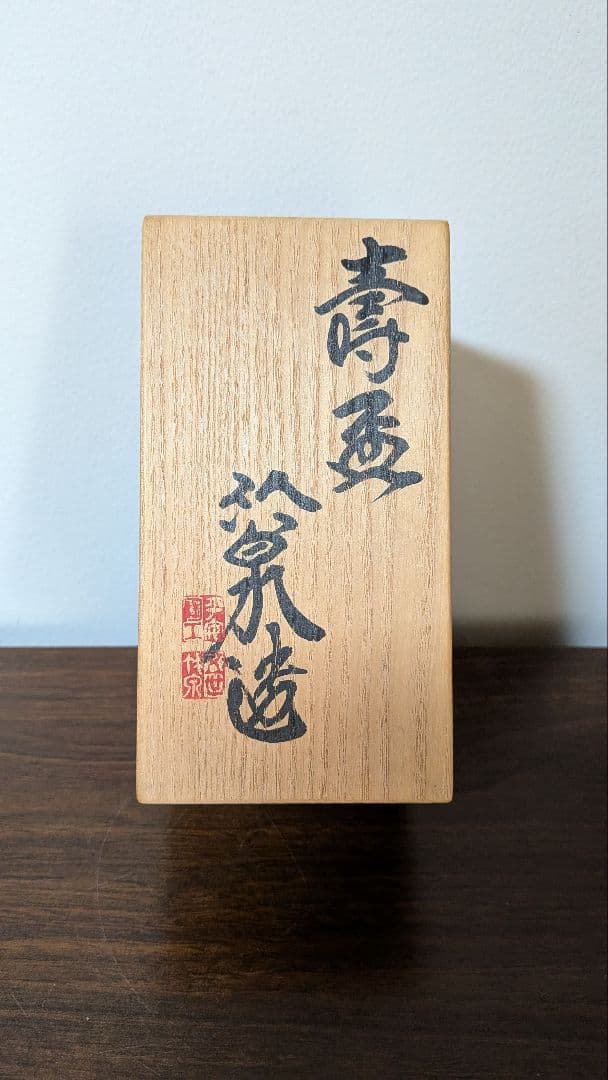 壽盃
竹泉造